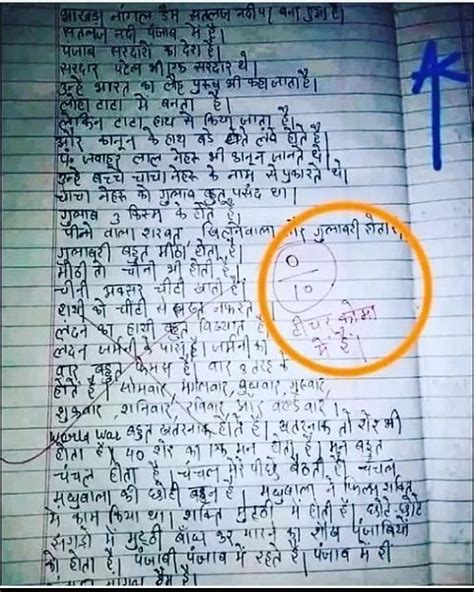 भाखड़ा नांगल डैम सतलज नदी पर बना हुआ है।
सतलज नदी पंजाब में है।
पंजाब सरदारों का देश है।
सरदार पटेल भी एक सरदार थे।
उन्हे भारत का लौह पुरुष भी कहा जाता है।
लोहा टाटा में बनता है।
लेकिन टाटा हाथ से किया जाता है।
और कानून के हाथ बडे होते लंबे होते हैं।
पं. जवाहर लाल नेहरू भी कानून जानते थे।
उन्हे बच्चे चाचा नेहरू के नाम से पुकारते थे।
चाचा नेहरू को गुलाब बहुत पसंद था।
गुलाब 3 किस्म के होते हैं।
पीने वाला शरबत, खिलनेवाला और गुलाबरी होता।
गुलाबरी बहुत मीठा होता है।
मीठी तो चीनी भी होती है।
चीनी अक्सर चीटी खाती है।
हाथी को चीटी से बहुत नफरत है।
लंदन का हाथी बहुत विख्यात है।
लंदन जर्मनी के पास है। जर्मनी का
वार बहुत फेमस है। वार 8 तरह के
होते हैं। सोमवार, मंगलवार, बुधवार, गुरुवार,
शुक्रवार, शनिवार, रविवार और वर्ल्ड वार।
World War बहुत खतरनाक होते है। खतरनाक तो शेर भी
होता है। 40 शेर का एक मन होता है। मन बहुत
चंचल होता है। चंचल मेरे पीछे बैठती है। चंचल
मधुबाला की छोटी बहन है। मधुबाला ने फिल्म शक्ति
में काम किया था। शक्ति मुट्ठी में होती है। छोटे-छोटे
झगड़ो में मुट्ठी बाँध कर मारने का शौख पंजाबियों
को होता है। पंजाबी पंजाब में रहते है। पंजाब में ही
नांगल डैम है।
0
10
टीचर कोमा
में है।
AK